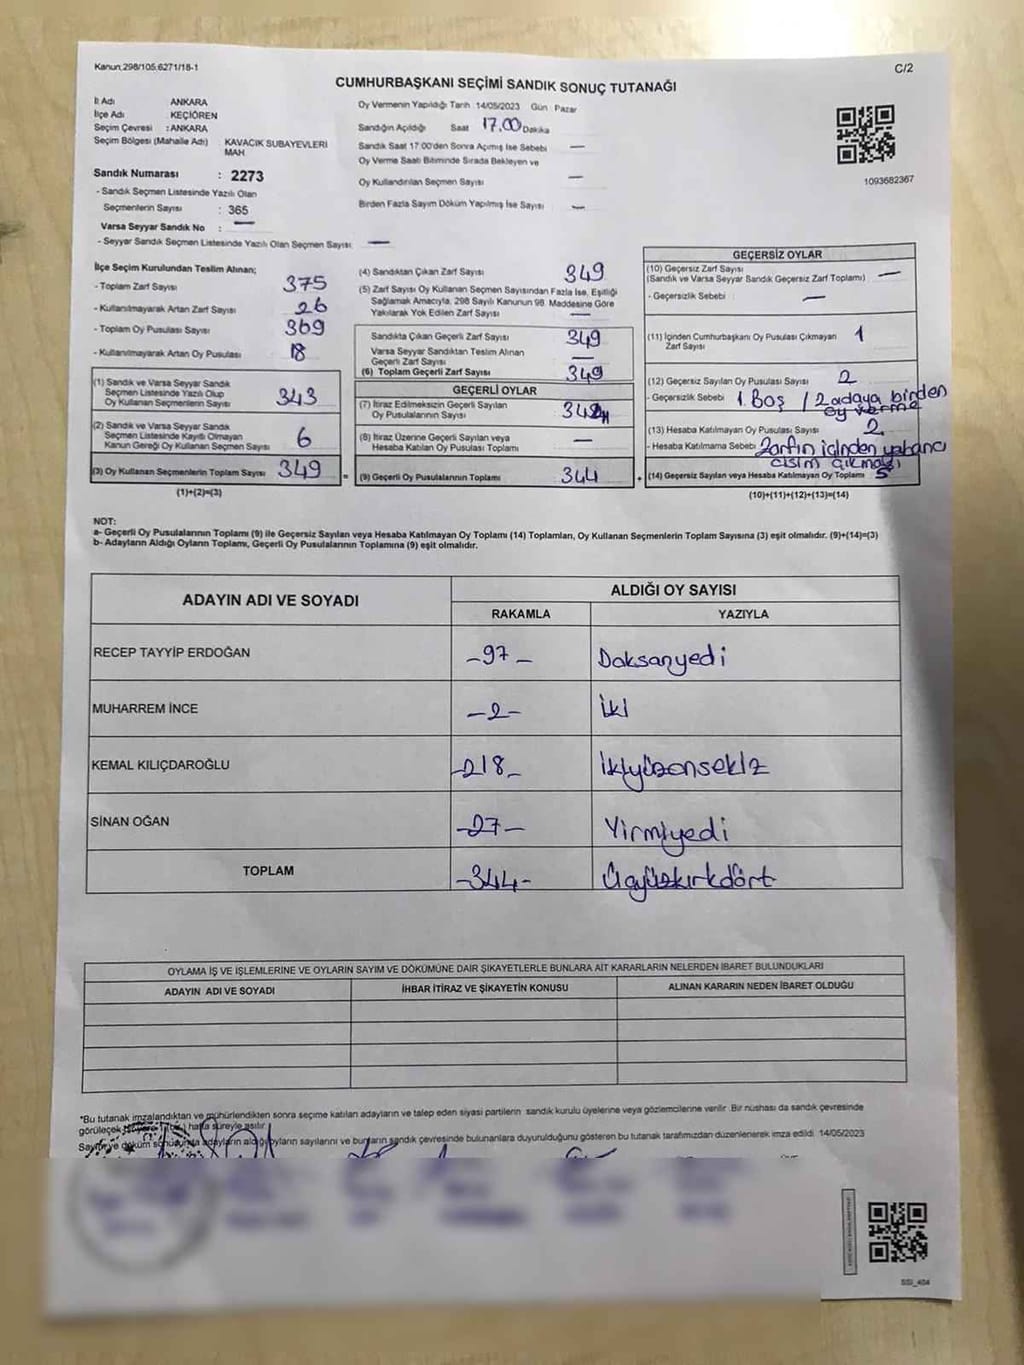 Kanun:298/105,6271/18-1
C/2
CUMHURBAŞKANI SEÇİMİ SANDIK SONUÇ TUTANAĞI
İl Adı ANKARA
İlçe Adı : KEÇİÖREN
Seçim Çevresi : ANKARA
Seçim Bölgesi (Mahalle Adı) : KAVACIK SUBAYEVLERİ MAH
Sandık Numarası : 2273
- Sandık Seçmen Listesinde Yazılı Olan
Seçmenlerin Sayısı : 365
Varsa Seyyar Sandık No : —
- Seyyar Sandık Seçmen Listesinde Yazılı Olan Seçmen Sayısı: —
Oy Vermenin Yapıldığı Tarih 14/05/2023 Gün Pazar
Sandığın Açıldığı Saat 17.00 Dakika
Sandık Saat 17:00'den Sonra Açılmış İse Sebebi —
Oy Verme Saati Bitiminde Sırada Bekleyen ve
Oy Kullandırılan Seçmen Sayısı —
Birden Fazla Sayım Döküm Yapılmış İse Sayısı —
1093682367
İlçe Seçim Kurulundan Teslim Alınan;
- Toplam Zarf Sayısı 375
- Kullanılmayarak Artan Zarf Sayısı 26
- Toplam Oy Pusulası Sayısı 369
- Kullanılmayarak Artan Oy Pusulası 18
(1) Sandık ve Varsa Seyyar Sandık
Seçmen Listesinde Yazılı Olup
Oy Kullanan Seçmenlerin Sayısı 343
(2) Sandık ve Varsa Seyyar Sandık
Seçmen Listesinde Kayıtlı Olmayan
Kanun Gereği Oy Kullanan Seçmen Sayısı 6
(3) Oy Kullanan Seçmenlerin Toplam Sayısı 349 =
(1)+(2)=(3)
(4) Sandıktan Çıkan Zarf Sayısı 349
(5) Zarf Sayısı Oy Kullanan Seçmen Sayısından Fazla İse, Eşitliği
Sağlamak Amacıyla, 298 Sayılı Kanunun 98. Maddesine Göre
Yakılarak Yok Edilen Zarf Sayısı —
Sandıkta Çıkan Geçerli Zarf Sayısı 349
Varsa Seyyar Sandıktan Teslim Alınan
Geçerli Zarf Sayısı —
(6) Toplam Geçerli Zarf Sayısı 349
GEÇERLİ OYLAR
(7) İtiraz Edilmeksizin Geçerli Sayılan
Oy Pusulalarının Sayısı
(8) İtiraz Üzerine Geçerli Sayılan veya
Hesaba Katılan Oy Pusulası Toplamı —
(9) Geçerli Oy Pusulalarının Toplamı 344 +
GEÇERSİZ OYLAR
(10) Geçersiz Zarf Sayısı
(Sandık ve Varsa Seyyar Sandık Geçersiz Zarf Toplamı) —
- Geçersizlik Sebebi —
(11) İçinden Cumhurbaşkanı Oy Pusulası Çıkmayan
Zarf Sayısı 1
(12) Geçersiz Sayılan Oy Pusulası Sayısı 2
- Geçersizlik Sebebi 1. Boş / 2 adaya birden
oy verme
(13) Hesaba Katılmayan Oy Pusulası Sayısı 2
- Hesaba Katılmama Sebebi Zarfın içinden yabancı
cisim çıkması
(14) Geçersiz Sayılan veya Hesaba Katılmayan Oy Toplamı 5
(10)+(11)+(12)+(13)=(14)
NOT:
a- Geçerli Oy Pusulalarının Toplamı (9) ile Geçersiz Sayılan veya Hesaba Katılmayan Oy Toplamı (14) Toplamları, Oy Kullanan Seçmenlerin Toplam Sayısına (3) eşit olmalıdır. (9)+(14)=(3)
b- Adayların Aldığı Oyların Toplamı, Geçerli Oy Pusulalarının Toplamına (9) eşit olmalıdır.
ADAYIN ADI VE SOYADI
ALDIĞI OY SAYISI
RAKAMLA YAZIYLA
RECEP TAYYİP ERDOĞAN -97- Doksanyedi
MUHARREM İNCE -2- İki
KEMAL KILIÇDAROĞLU -218- İkiyüzonsekiz
SİNAN OĞAN -27- Yirmiyedi
TOPLAM -344- Üçyüzkırkdört
OYLAMA İŞ VE İŞLEMLERİNE VE OYLARIN SAYIM VE DÖKÜMÜNE DAİR ŞİKAYETLERLE BUNLARA AİT KARARLARIN NELERDEN İBARET BULUNDUKLARI
ADAYIN ADI VE SOYADI İHBAR İTİRAZ VE ŞİKAYETİN KONUSU ALINAN KARARIN NEDEN İBARET OLDUĞU
*Bu tutanak imzalandıktan ve mühürlendikten sonra seçime katılan adayların ve talep eden siyasi partilerin sandık kurulu üyelerine veya gözlemcilerine verilir. Bir nüshası da sandık çevresinde
görülecek hafta süreyle asılır.
Sayım ve döküm sonucunda adayların aldığı oyların sayılarını ve bunların sandık çevresinde bulunanlara duyurulduğunu gösteren bu tutanak tarafımızdan düzenlenerek imza edildi. 14/05/2023
SSI_404